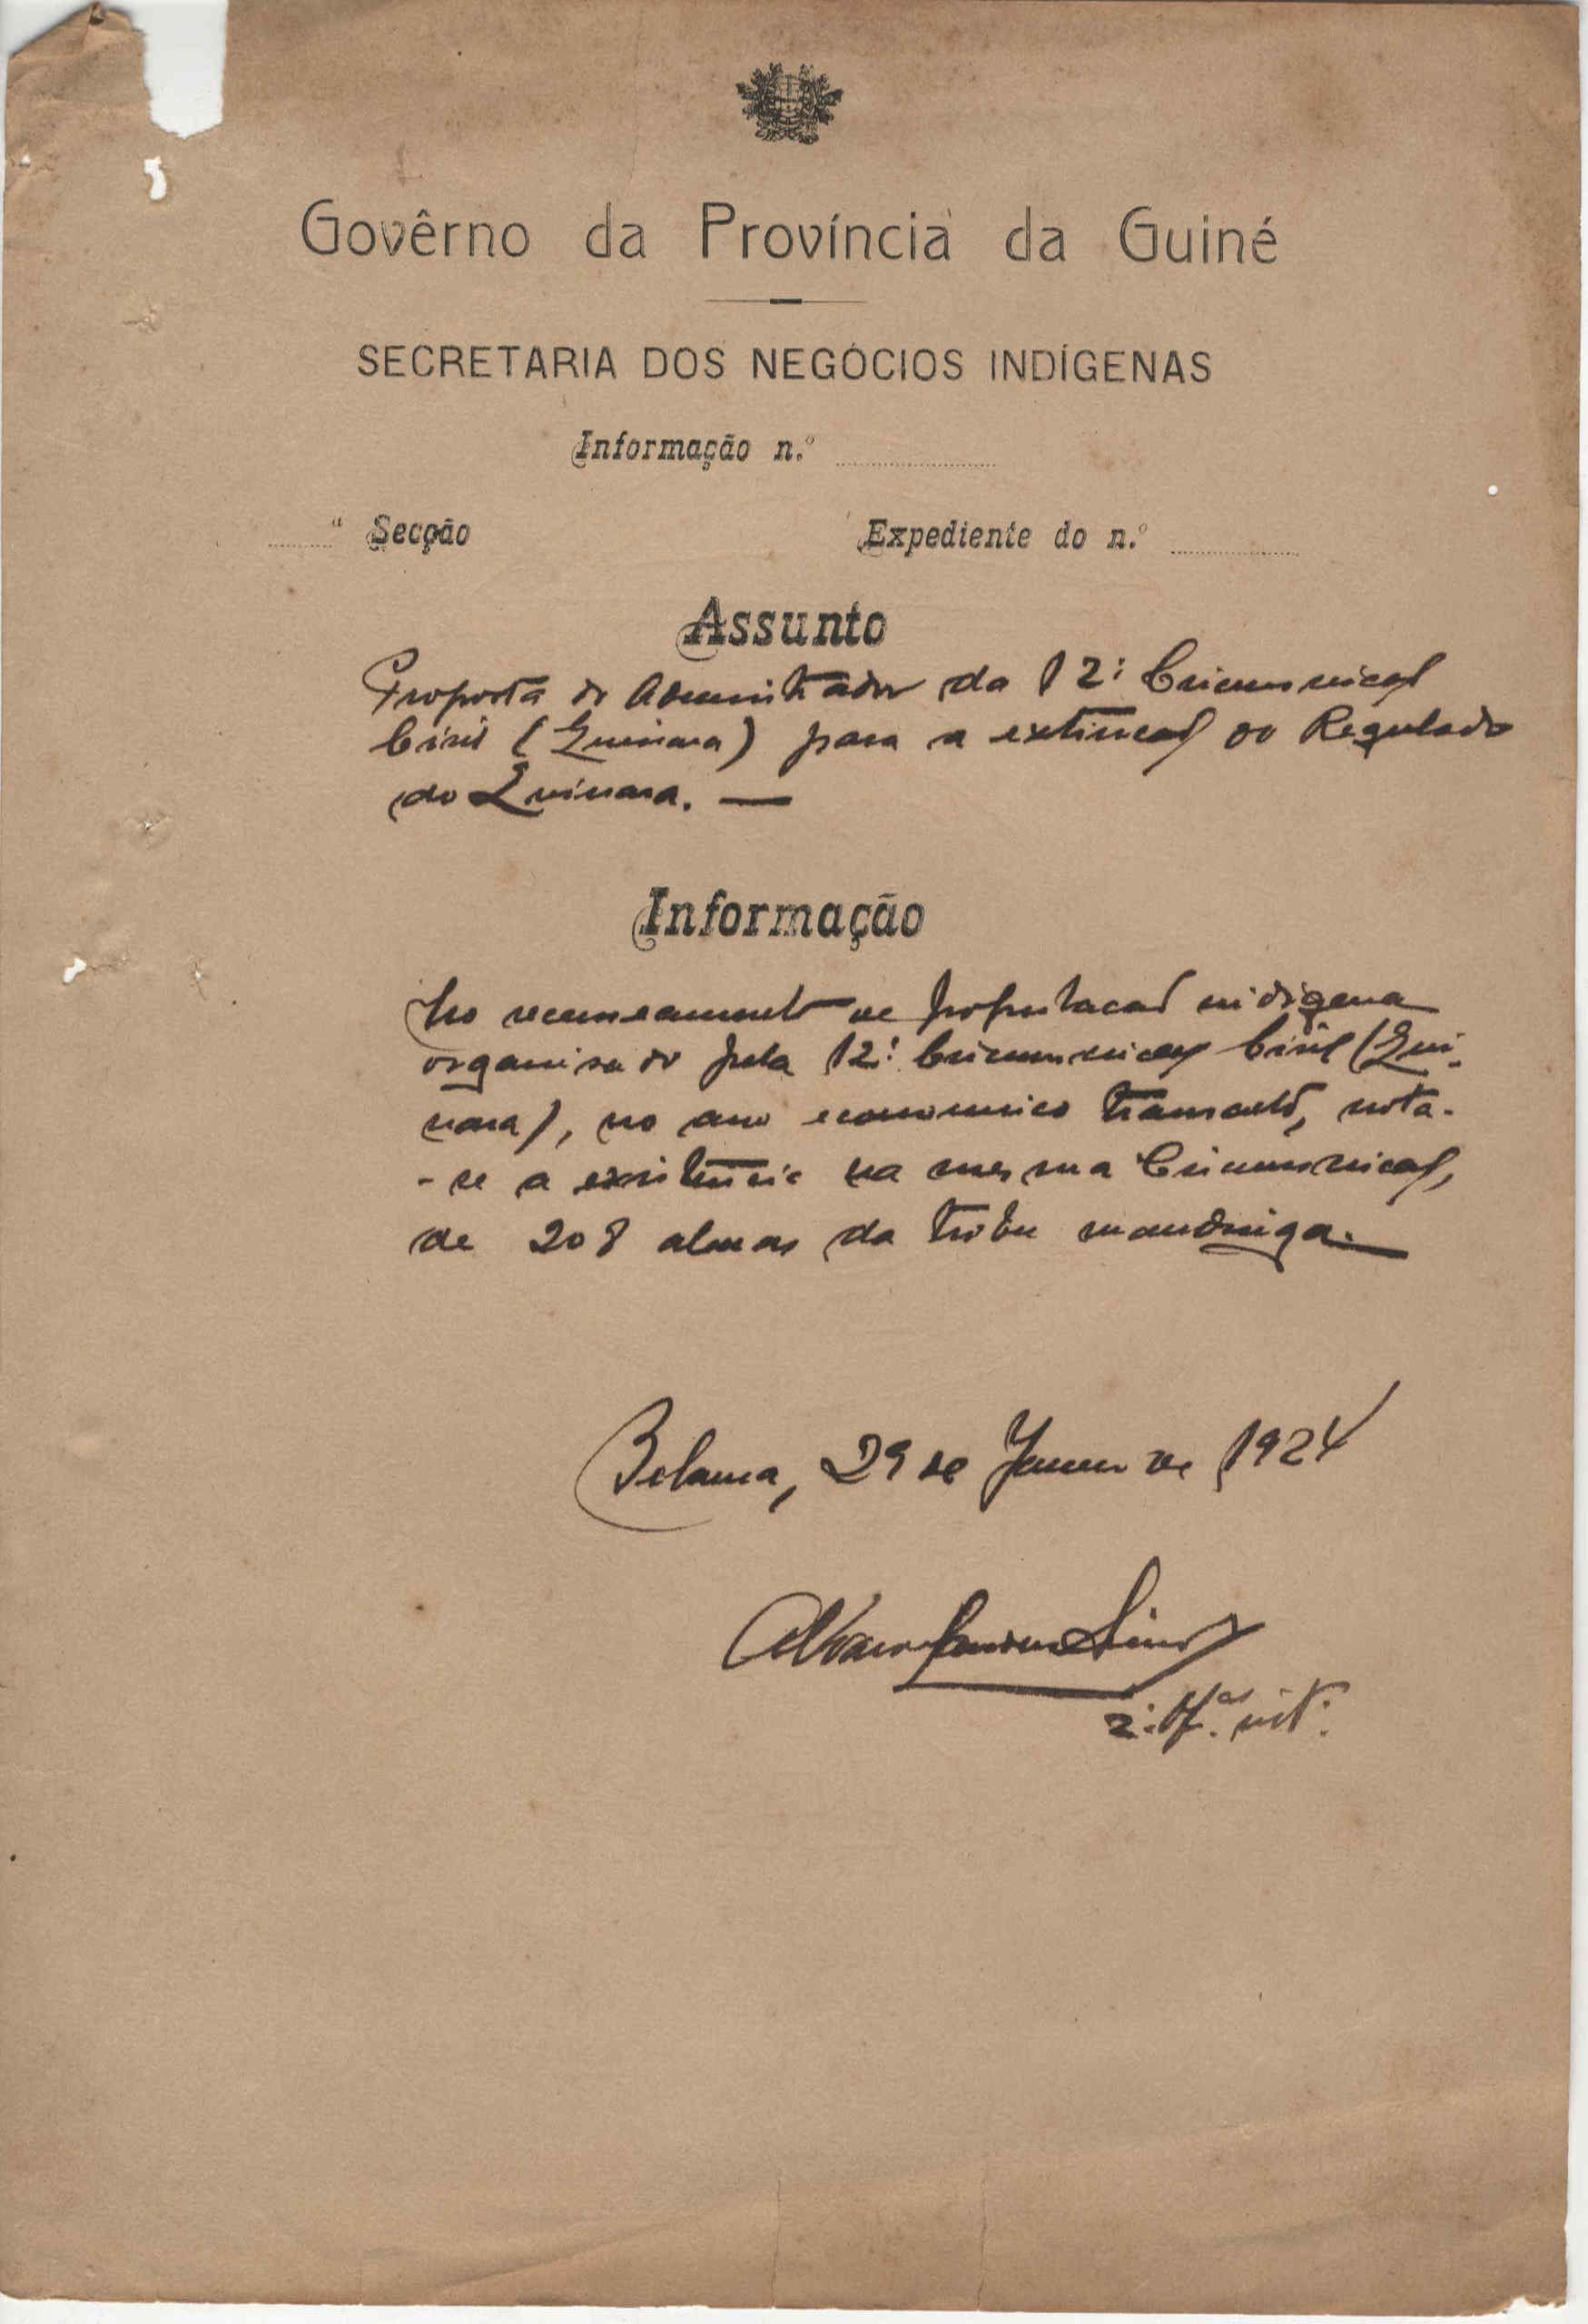 Govêrno da Província da Guiné
SECRETARIA DOS NEGÓCIOS INDÍGENAS
Informação n.º
ª Secção
Expediente do n.º
Assunto
Proposta do Administrador da 12ª Circunscrição
Civil (Quinara) para a extinção do Regulado
do Quinara. —
Informação
No recenseamento de população indigena
organisado pela 12ª Circunscrição Civil (Qui-
nara), no ano economico transacto, nota-
-se a existencia na mesma Circunscrição,
de 208 almas da tribu mandinga. —
Bolama, 29 de Janeiro de 1924
Alvaro
2º Of.al intº